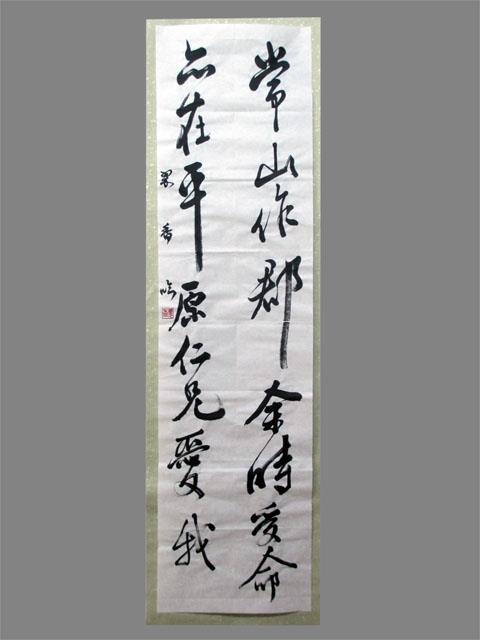 常山作郡余時受命
亦在平原仁兄愛我
翠香臨